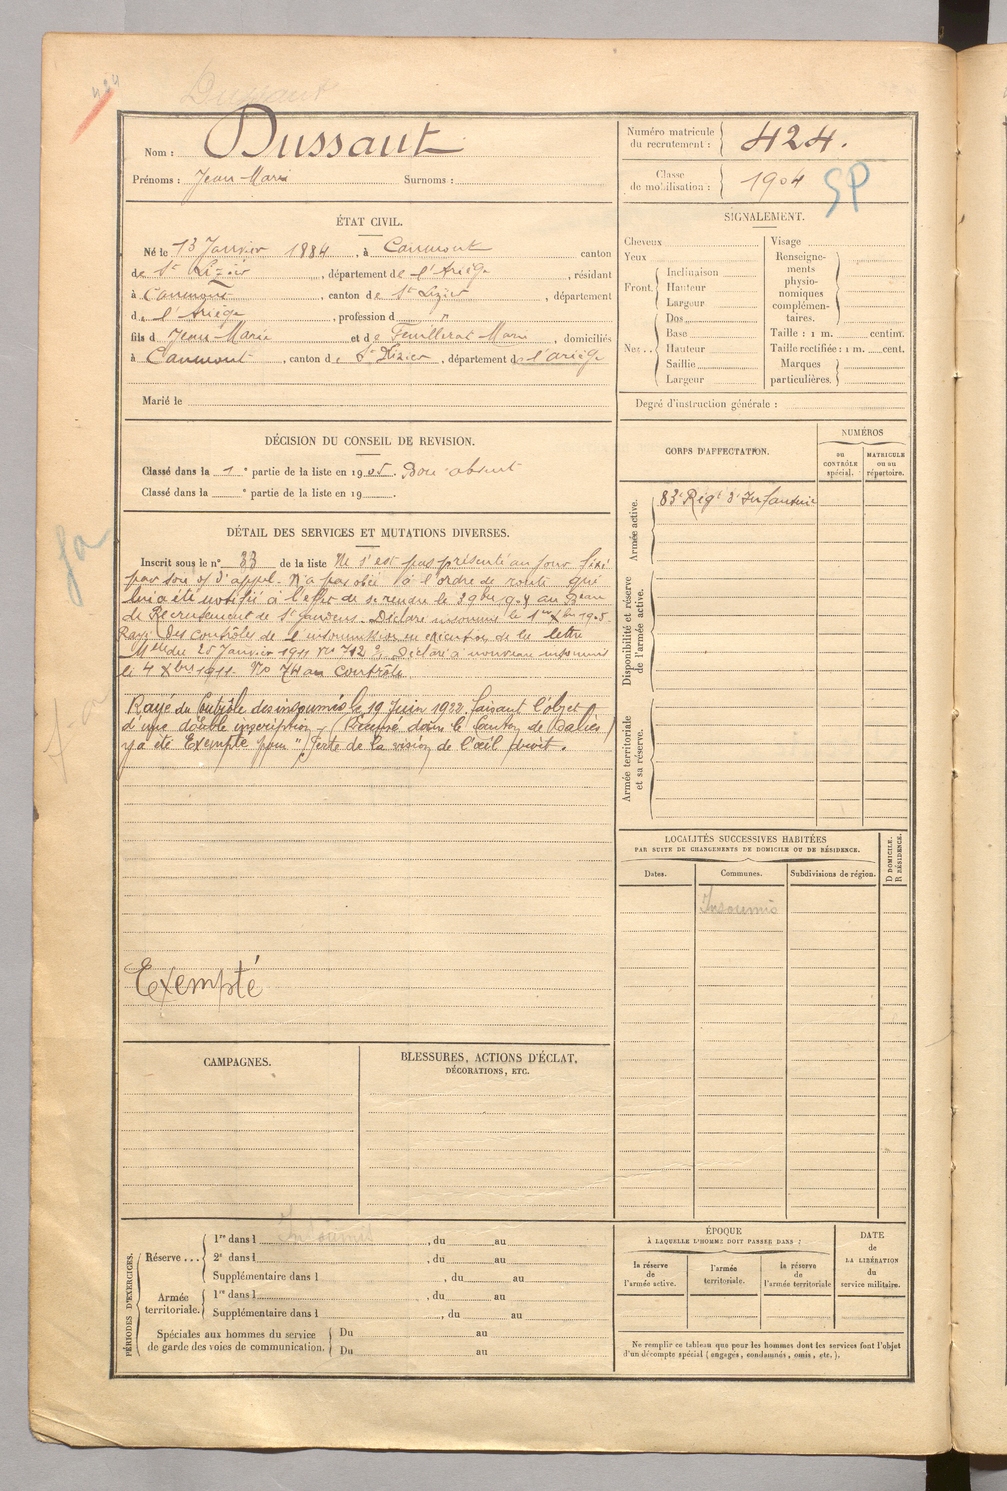 424
Dussaut
Nom : Dussaut
Prénoms : Jean Marie Surnoms :
Numéro matricule du recrutement : 424.
Classe de mobilisation : 1904 SP
ÉTAT CIVIL.
Né le 13 Janvier 1884, à Caumont canton
de St Lizier, département de l'Ariège, résidant
à Caumont, canton de St Lizier, département
de l'Ariège, profession d "
fils d Jean Marie et de Feuillerat Marie, domiciliés
à Caumont, canton de St Lizier, département de l'Ariège
Marié le
SIGNALEMENT.
Cheveux
Yeux
Front. Inclinaison
Hauteur
Largeur
Nez.. Dos
Base
Hauteur
Saillie
Largeur
Visage
Renseigne-
ments
physio-
nomiques
complémen-
taires.
Taille : 1 m. centim.
Taille rectifiée : 1 m. cent.
Marques
particulières.
Degré d'instruction générale :
DÉCISION DU CONSEIL DE REVISION.
Classé dans la 1e partie de la liste en 1905. Bon absent
Classé dans la e partie de la liste en 19 .
DÉTAIL DES SERVICES ET MUTATIONS DIVERSES.
Inscrit sous le n° 33 de la liste Ne s'est pas présenté au jour fixé
par son o/ d'appel. N'a pas obéi à l'ordre de route qui
lui a été notifié à l'effet de se rendre le au Bureau
de Recrutement de St Gaudens. Déclaré insoumis le 1er Xbre 1905.
Rayé des contrôles de l'insoumission en exécution de la lettre
Melle du 25 Janvier 1911 No 712 Déclaré à nouveau insoumis
le 4 Xbre 1911. No 74 au contrôle.
Rayé du Contrôle des insoumis le 19 Juin 1922 faisant l'objet
d'une double inscription (Recensé dans le Canton de Salies)
y a été Exempté pour "Perte de la vision de l'œil droit.
Exempté
CORPS D'AFFECTATION.
NUMÉROS
au CONTRÔLE spécial.
MATRICULE ou au répertoire.
Armée active.
83e Régt d'Infanterie
Disponibilité et réserve de l'armée active.
Armée territoriale et sa réserve.
LOCALITÉS SUCCESSIVES HABITÉES
PAR SUITE DE CHANGEMENTS DE DOMICILE OU DE RÉSIDENCE.
Dates. Communes. Subdivisions de région.
D DOMICILE. R RÉSIDENCE.
Insoumis
CAMPAGNES.
BLESSURES, ACTIONS D'ÉCLAT,
DÉCORATIONS, ETC.
PÉRIODES D'EXERCICES.
Réserve... 1re dans l Insoumis, du au
2e dans l , du au
Supplémentaire dans l , du au
Armée territoriale. 1re dans l , du au
Supplémentaire dans l , du au
Spéciales aux hommes du service
de garde des voies de communication. Du au
Du au
ÉPOQUE
À LAQUELLE L'HOMME DOIT PASSER DANS :
la réserve de l'armée active.
l'armée territoriale.
la réserve de l'armée territoriale
DATE de LA LIBÉRATION du service militaire.
Ne remplir ce tableau que pour les hommes dont les services font l'objet
d'un décompte spécial (engagés, condamnés, omis, etc.).